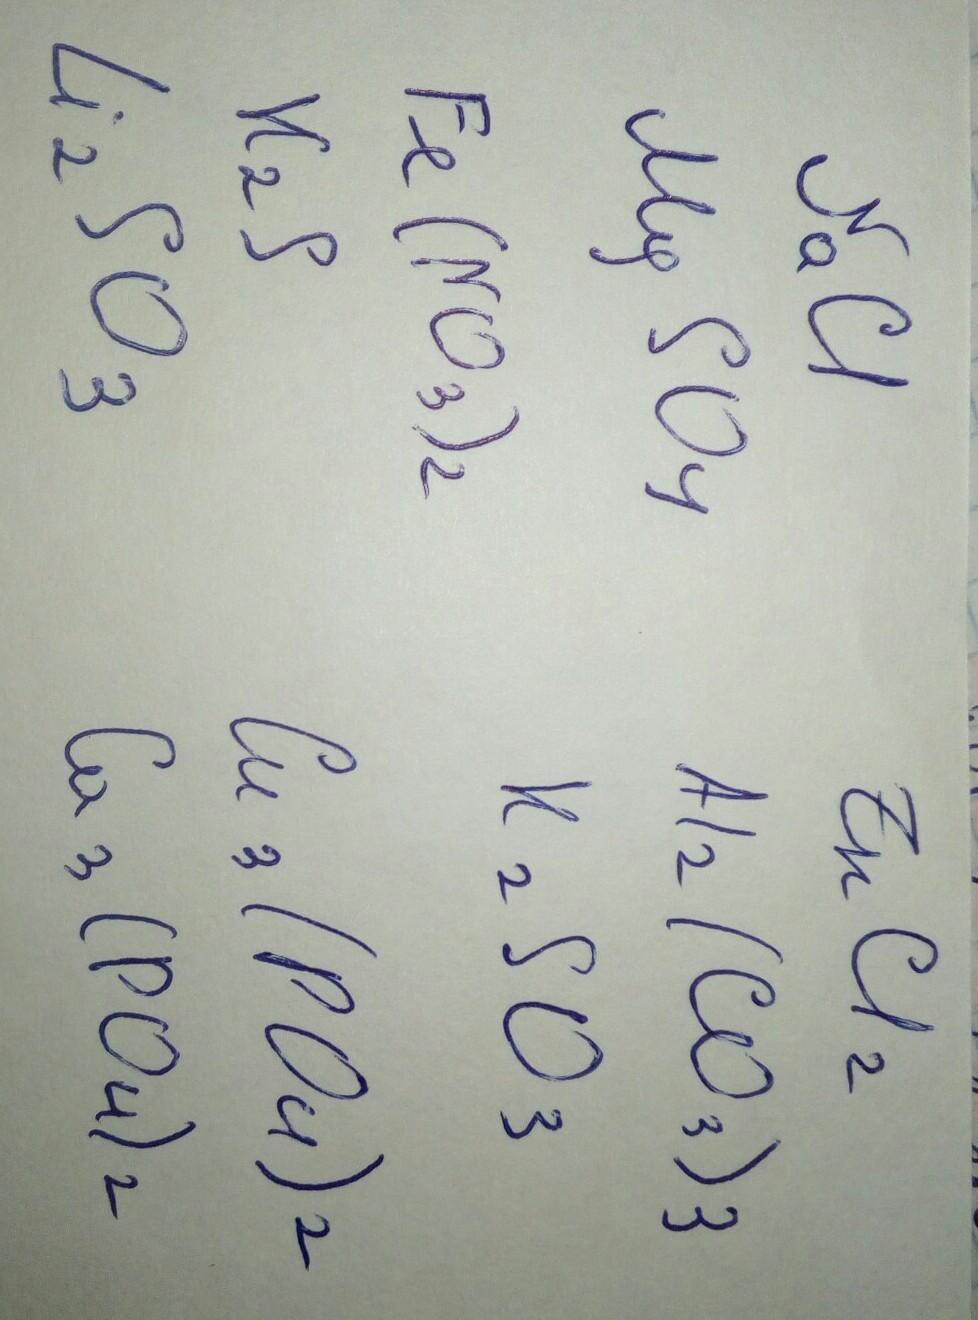 NaCl
MgSO4
Fe(NO3)2
K2S
Li2SO3
ZnCl2
Al2(CO3)3
K2SO3
Cu3(PO4)2
Ca3(PO4)2